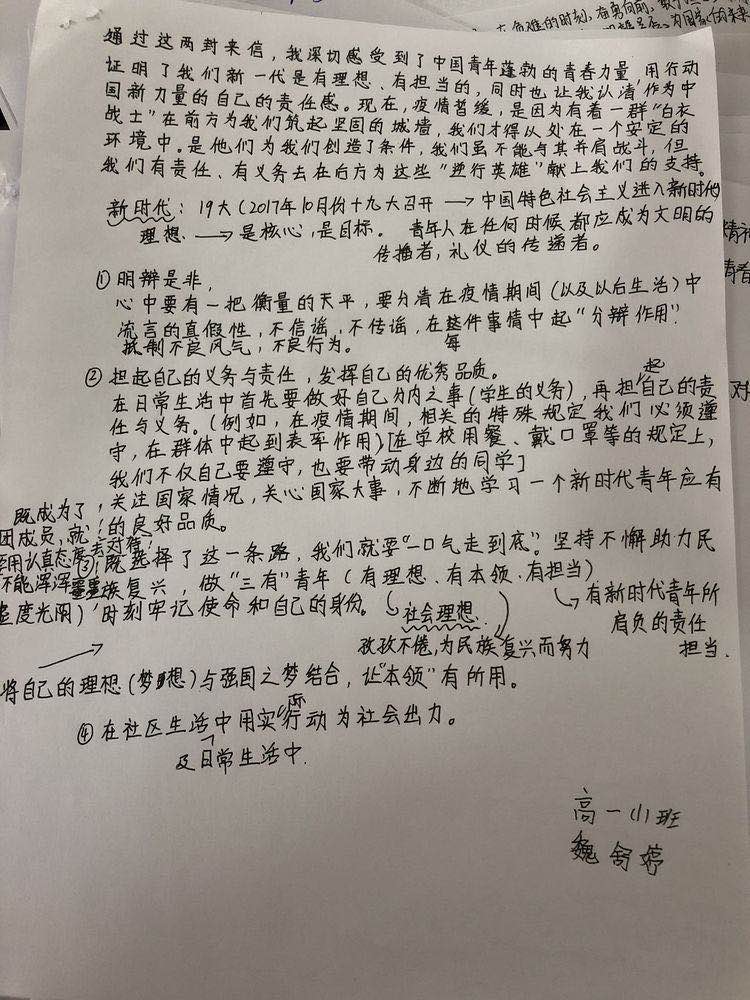 通过这两封来信，我深切感受到了中国青年蓬勃的青春力量，用行动
证明了我们新一代是有理想、有担当的，同时也让我认清作为中
国新力量的自己的责任感。现在，疫情暂缓，是因为有着一群“白衣
战士”在前方为我们筑起坚固的城墙，我们才得以处在一个安定的
环境中。是他们为我们创造了条件，我们虽不能与其并肩战斗，但
我们有责任、有义务去在后方为这些“逆行英雄”献上我们的支持。
新时代：19大（2017年10月份十九大召开→中国特色社会主义进入新时代）
理想→是核心，是目标。 青年人在任何时候都应成为文明的
传播者，礼仪的传递者。
①明辩是非，
心中要有一把衡量的天平，要分清在疫情期间（以及以后生活）中
流言的真假性，不信谣，不传谣，在每件事情中起“分辩作用”
抵制不良风气，不良行为。
②担起自己的义务与责任，发挥自己的优秀品质。
在日常生活中首先要做好自己分内之事（学生的义务），再担起自己的责
任与义务。（例如，在疫情期间，相关的特殊规定我们必须遵
守，在群体中起到表率作用）[在学校用餐、戴口罩等的规定上，
我们不仅自己要遵守，也要带动身边的同学]
关注国家情况，关心国家大事，不断地学习一个新时代青年应有
的良好品质。
既成为了
团成员，就
要用认真态度去对待，
不能浑浑噩噩
虚度光阴）
③既选择了这一条路，我们就要“一口气走到底”。坚持不懈助力民
族复兴，做“三有”青年（有理想、有本领、有担当）
时刻牢记使命和自己的身份。
社会理想
→有新时代青年所
肩负的责任
担当.
孜孜不倦，为民族复兴而努力
将自己的理想（梦想）与强国之梦结合，让“本领”有所用。
④在社区生活中用实际行动为社会出力。
及日常生活中.
高一（1）班
魏舒婷